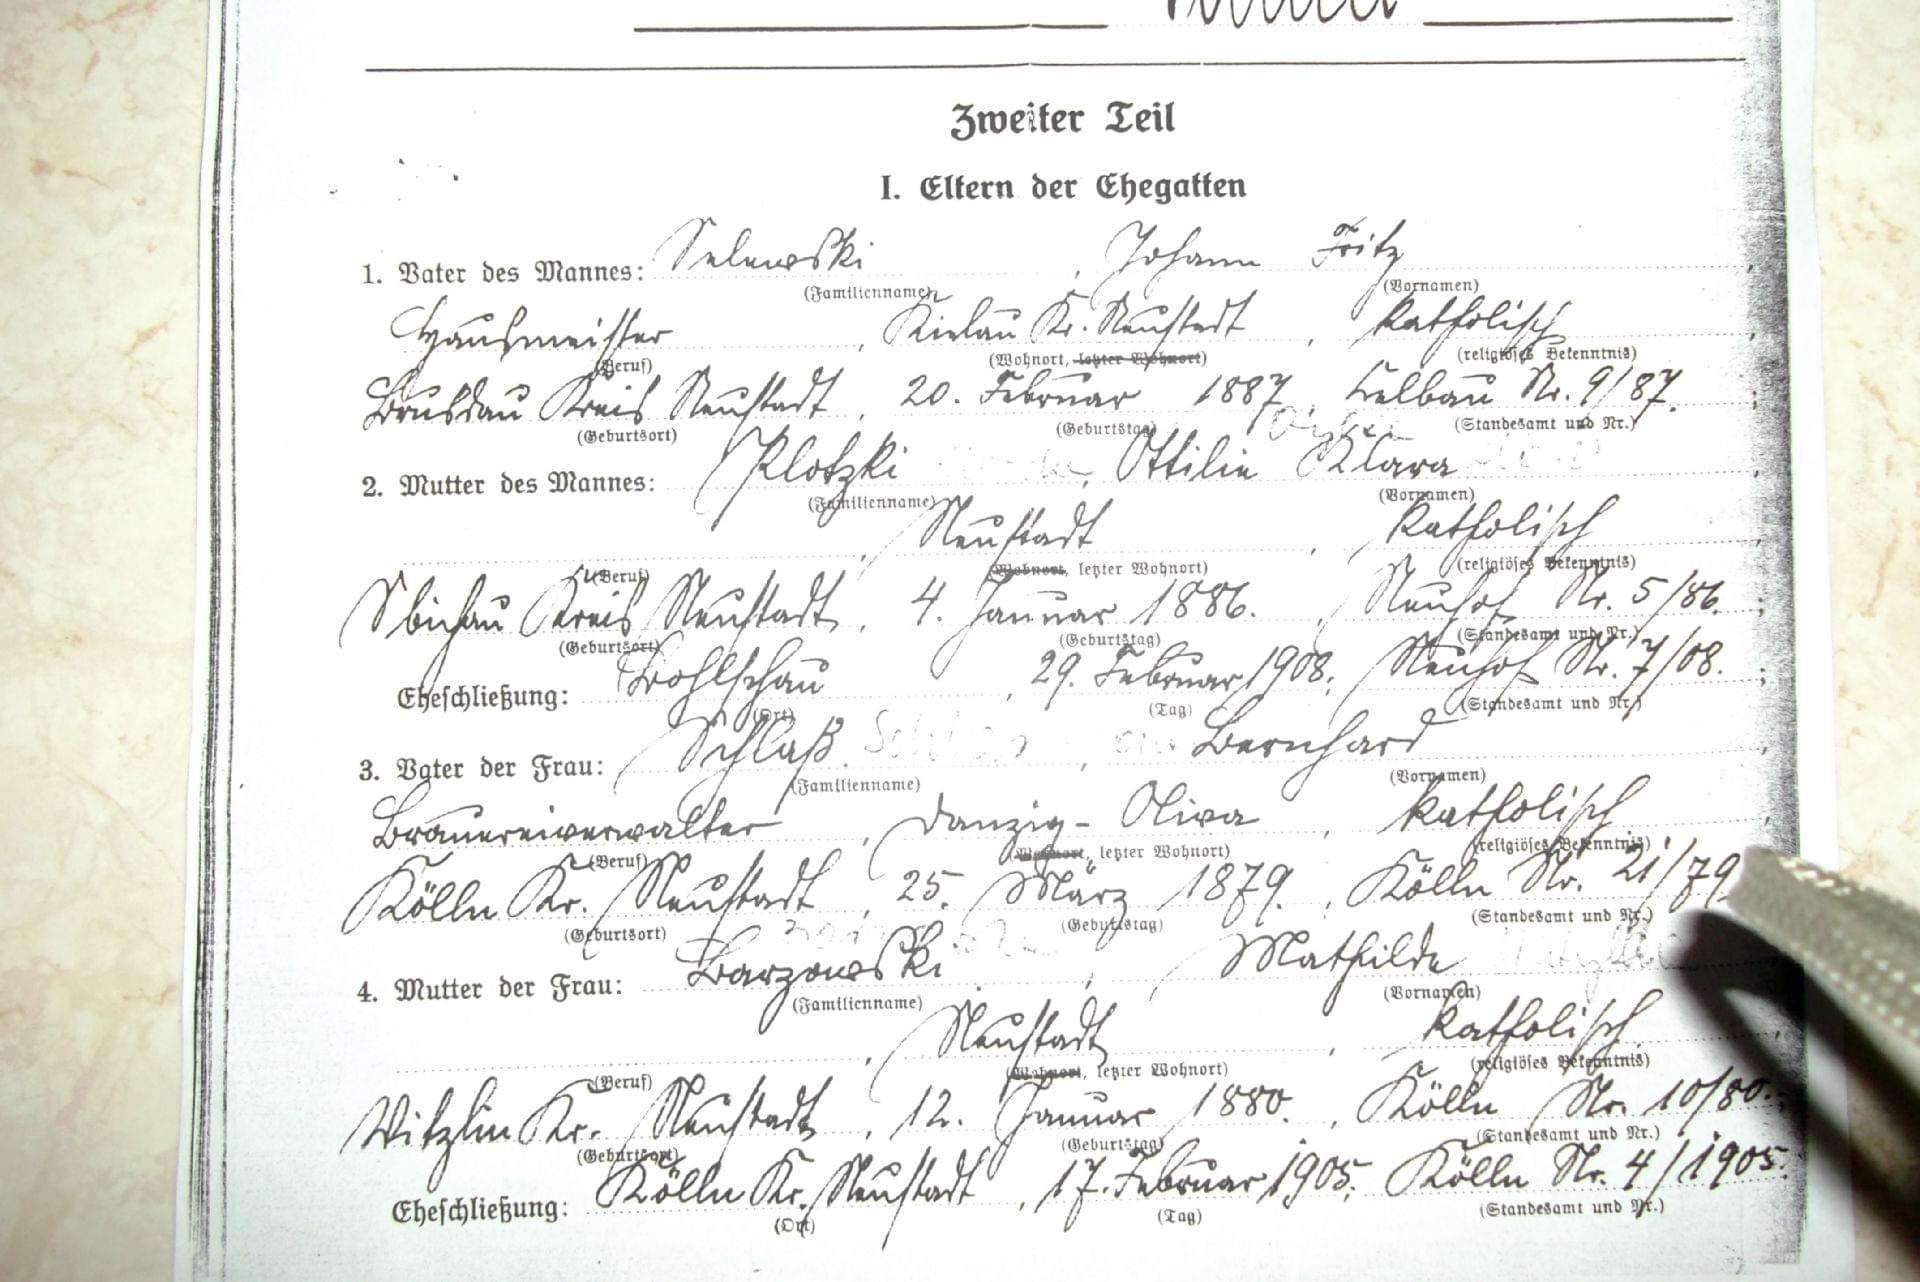 Zweiter Teil
I. Eltern der Ehegatten
1. Vater des Mannes: Selewski, Johann Fritz
(Familienname) (Vornamen)
Hausmeister, Kielau Kr. Neustadt, katholisch
(Beruf) (Wohnort, letzter Wohnort) (religiöses Bekenntnis)
Brusdau Kreis Neustadt, 20. Februar 1887, Nr. 9/87.
(Geburtsort) (Geburtstag) (Standesamt und Nr.)
2. Mutter des Mannes: Klotzki, Ottilie Klara
(Familienname) (Vornamen)
Neustadt, katholisch
(Beruf) (Wohnort, letzter Wohnort) (religiöses Bekenntnis)
Sbichau Kreis Neustadt, 4. Januar 1886., Neuhof Nr. 5/86.;
(Geburtsort) (Geburtstag) (Standesamt und Nr.)
Eheschließung: Bohlschau, 29. Februar 1908, Neuhof Nr. 7/08.;
(Ort) (Tag) (Standesamt und Nr.)
3. Vater der Frau: Schlaß, Bernhard
(Familienname) (Vornamen)
Brauereiverwalter, Danzig-Oliva, katholisch
(Beruf) (Wohnort, letzter Wohnort) (religiöses Bekenntnis)
Kölln Kr. Neustadt, 25. März 1879., Kölln Nr. 21/79
(Geburtsort) (Geburtstag) (Standesamt und Nr.)
4. Mutter der Frau: Barzowski, Mathilde
(Familienname) (Vornamen)
Neustadt, katholisch
(Beruf) (Wohnort, letzter Wohnort) (religiöses Bekenntnis)
Witzlin Kr. Neustadt, 12. Januar 1880., Kölln Nr. 10/80.;
(Geburtsort) (Geburtstag) (Standesamt und Nr.)
Eheschließung: Kölln Kr. Neustadt, 17. Februar 1905, Kölln Nr. 4/1905.
(Ort) (Tag) (Standesamt und Nr.)